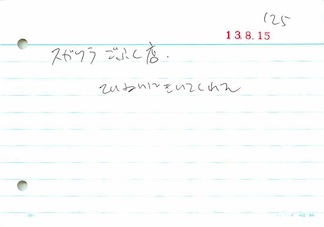 125
13.8.15
スガワラ ごふく店.
ていねいにきいてくれた